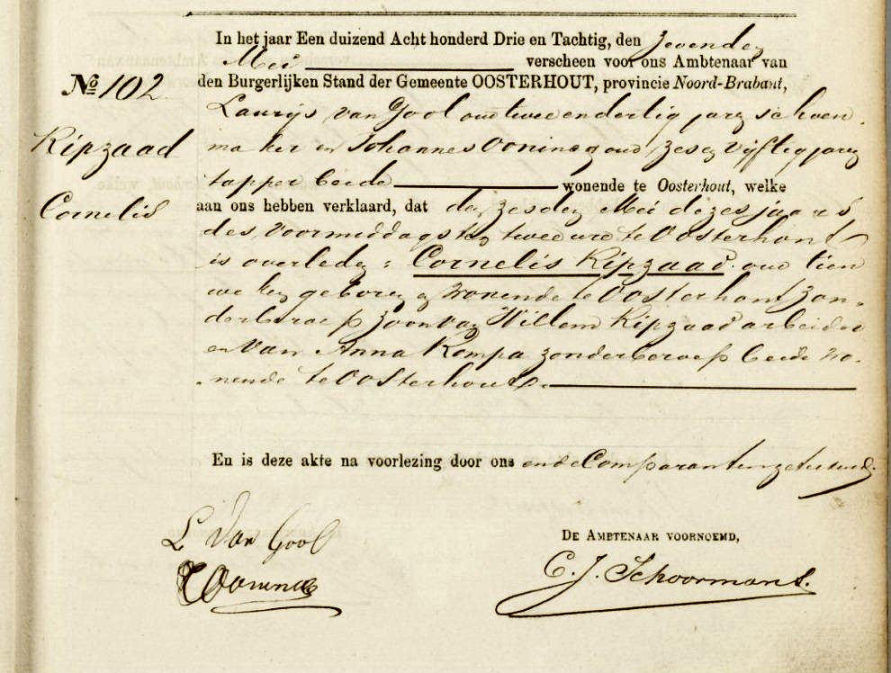 In het jaar Een duizend Acht honderd Drie en Tachtig, den Zevenden
Mei verscheen voor ons Ambtenaar van
den Burgerlijken Stand der Gemeente OOSTERHOUT, provincie Noord-Brabant,
№ 102
Kipzaad
Cornelis
Laurijs van Gool oud twee en dertig jaren schoen
maker en Johannes Oonincx oud zes en vijftig jaren
tapper beide wonende te Oosterhout, welke
aan ons hebben verklaard, dat den zesden Mei dezes jaars
des voormiddags ten twee ure te Oosterhout
is overleden: Cornelis Kipzaad oud tien
weken geboren en wonende te Oosterhout zon-
der beroep zoon van Willem Kipzaad arbeider
en van Anna Kompa zonder beroep beide wo-
nende te Oosterhout.
En is deze akte na voorlezing door ons en de Comparanten geteekend.
L Van Gool
DE AMBTENAAR VOORNOEMD,
C. J. Schoormans.